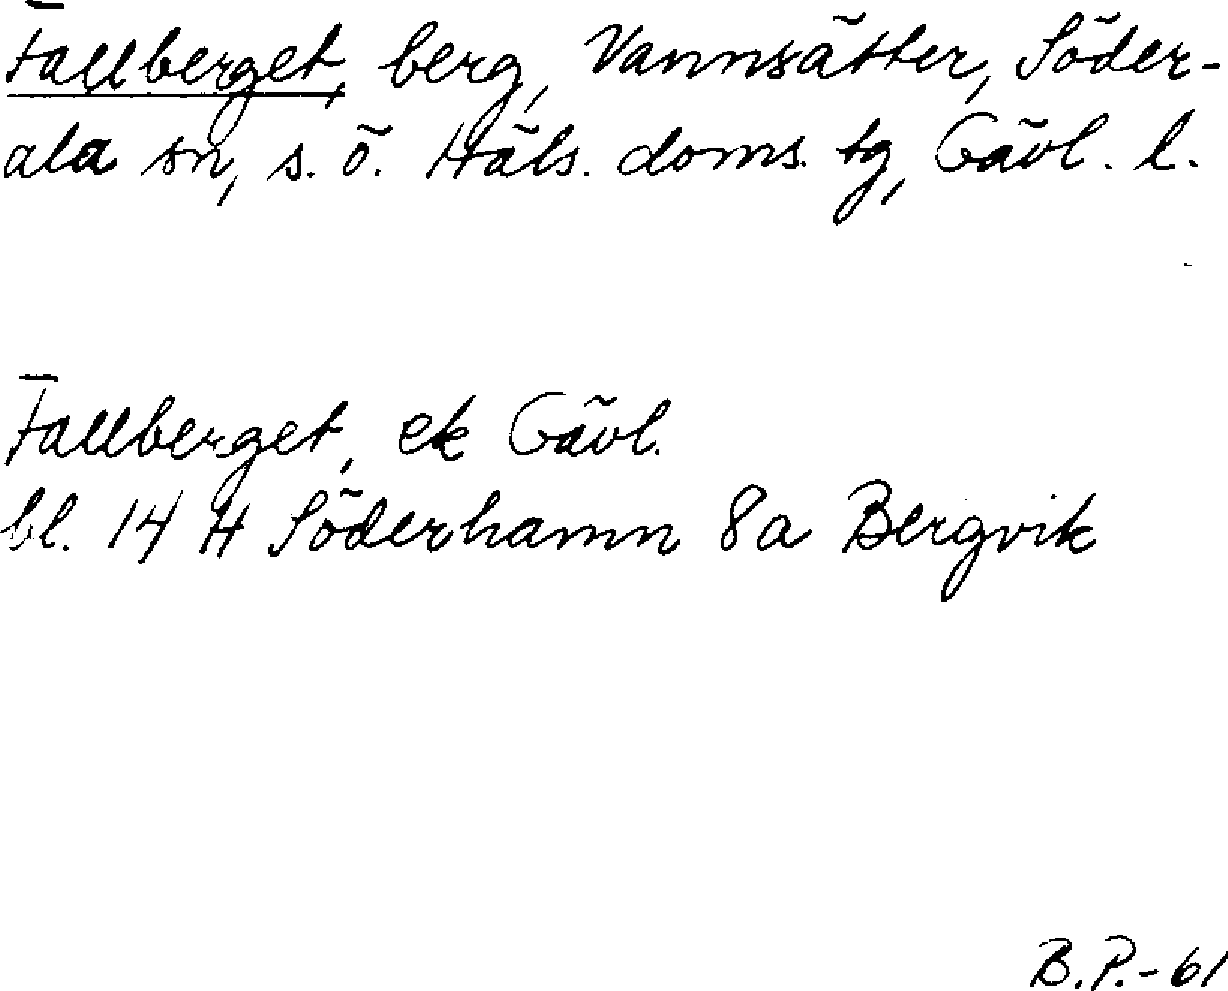 Fallberget, berg, Vannsätter, Söder-
ala sn, s. ö. Häls. doms. tg, Gävl. l.
Fallberget, ek Gävl.
bl. 14 H Söderhamn 8a Bergvik
B.P.-61